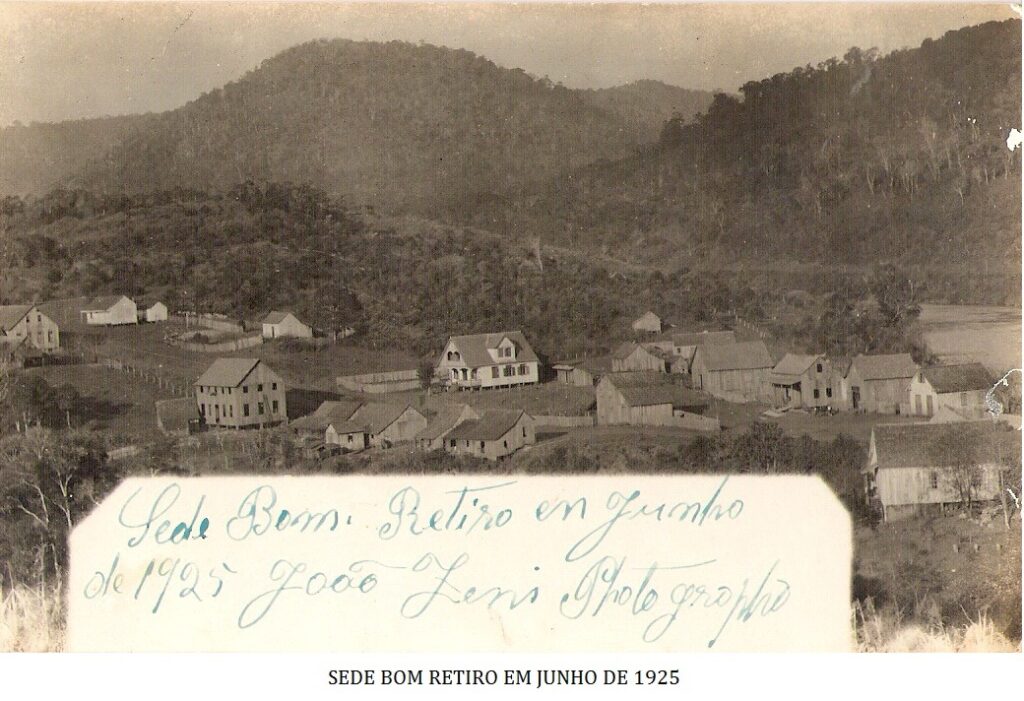 Sede Bom. Retiro en Junho
de 1925 João Zeni Photographo
SEDE BOM RETIRO EM JUNHO DE 1925